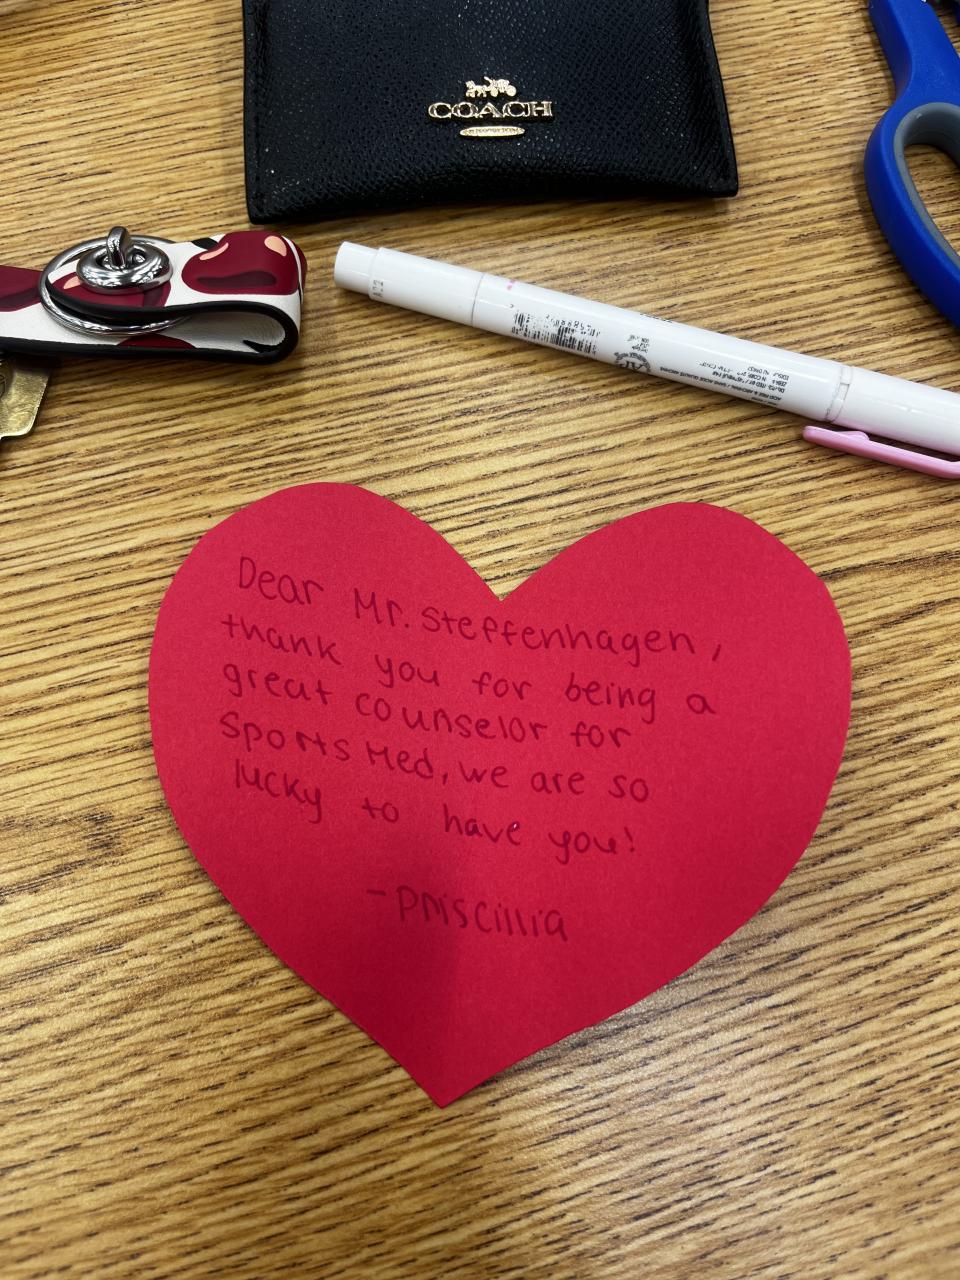 COACH
Dear Mr. Steffenhagen,
thank you for being a
great counselor for
Sports Med, we are so
lucky to have you!
- Priscillia